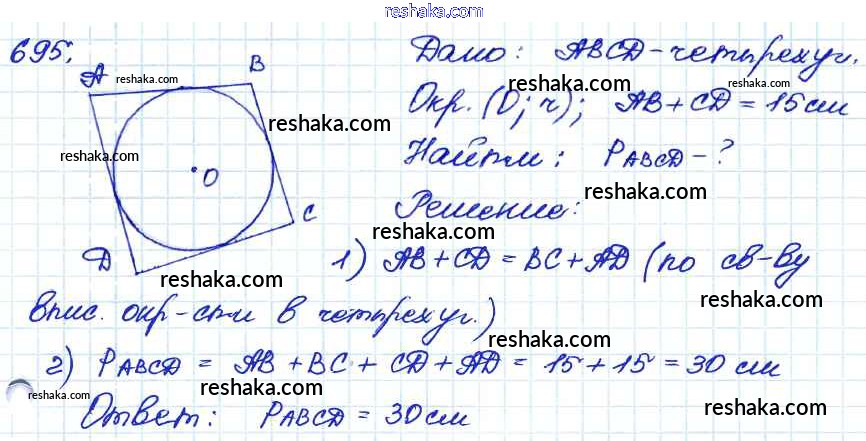 reshaka.com
695.
Дано: ABCD - четырехуг.
A reshaka.com B reshaka.com
Окр. (O; r); AB + CD = 15 см
reshaka.com
reshaka.com Найти: PABCD - ?
O reshaka.com
C Решение:
D reshaka.com 1) AB + CD = BC + AD (по св-ву
reshaka.com
впис. окр-сти в четырехуг.)
reshaka.com
2) PABCD = AB + BC + CD + AD = 15 + 15 = 30 см
reshaka.com reshaka.com
Ответ: PABCD = 30 см reshaka.com
reshaka.com